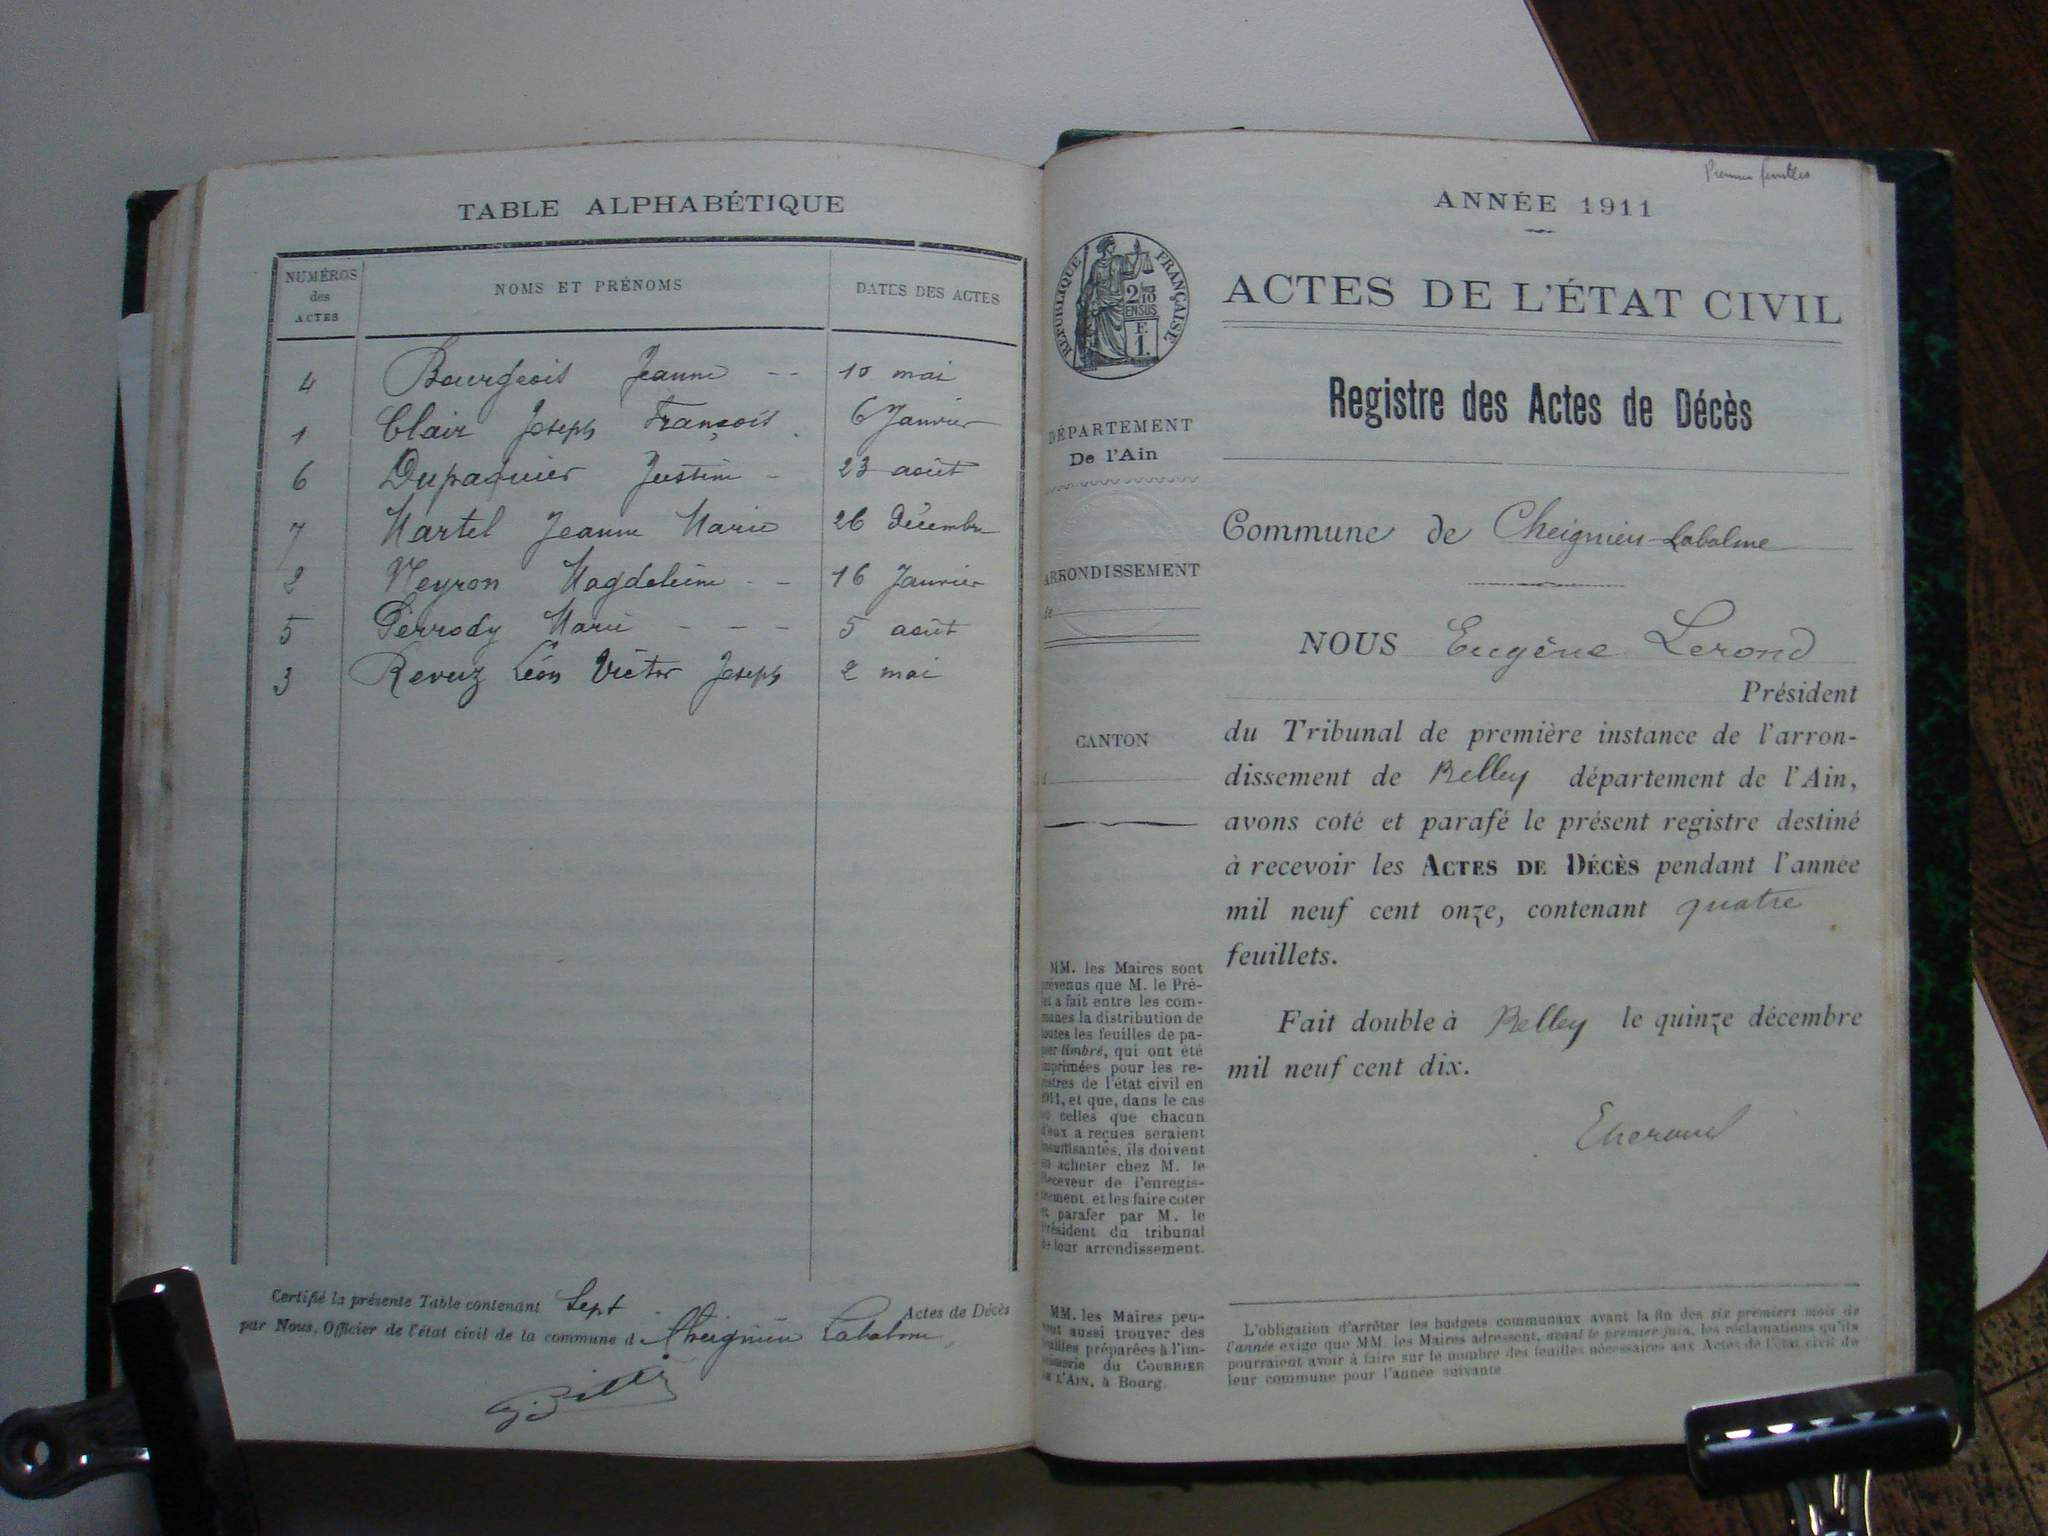 TABLE ALPHABÉTIQUE
NUMÉROS des ACTES NOMS ET PRÉNOMS DATES DES ACTES
4 Bourgeois Jeanne -- 10 mai
1 Clair Joseph François. 6 Janvier
6 Dupaquier Justine - 23 août
7 Martel Jeanne Marie 26 Décembre
2 Neyron Magdeleine - - 16 Janvier
5 Perrody Marie - - - 5 août
3 Revuz Léon Victor Joseph 2 mai
Certifié la présente Table contenant Sept Actes de Décès
par Nous, Officier de l'état civil de la commune d Cheignieu Labalme,
Premier feuillet
ANNÉE 1911
RÉPUBLIQUE FRANÇAISE
2/10
EN SUS
F.
1.
ACTES DE L'ÉTAT CIVIL
Registre des Actes de Décès
DÉPARTEMENT
De l'Ain
Commune de Cheignieu-Labalme
ARRONDISSEMENT
de
NOUS Eugène Lerond
Président
CANTON
du Tribunal de première instance de l'arron-
dissement de Belley département de l'Ain,
avons coté et parafé le présent registre destiné
à recevoir les ACTES DE DÉCÈS pendant l'année
mil neuf cent onze, contenant quatre
feuillets.
Fait double à Belley le quinze décembre
mil neuf cent dix.
MM. les Maires sont
prévenus que M. le Pré-
fet a fait entre les com-
munes la distribution de
toutes les feuilles de pa-
pier timbré, qui ont été
imprimées pour les re-
gistres de l'état civil en
1911, et que, dans le cas
où celles que chacun
d'eux a reçues seraient
insuffisantes, ils doivent
en acheter chez M. le
Receveur de l'enregis-
trement, et les faire coter
et parafer par M. le
Président du tribunal
de leur arrondissement.
MM. les Maires peu-
vent aussi trouver des
feuilles préparées à l'im-
primerie du COURRIER
DE L'AIN, à Bourg.
L'obligation d'arrêter les budgets communaux avant la fin des six premiers mois de
l'année exige que MM. les Maires adressent, avant le premier juin, les réclamations qu'ils
pourraient avoir à faire sur le nombre des feuilles nécessaires aux Actes de l'état civil de
leur commune pour l'année suivante